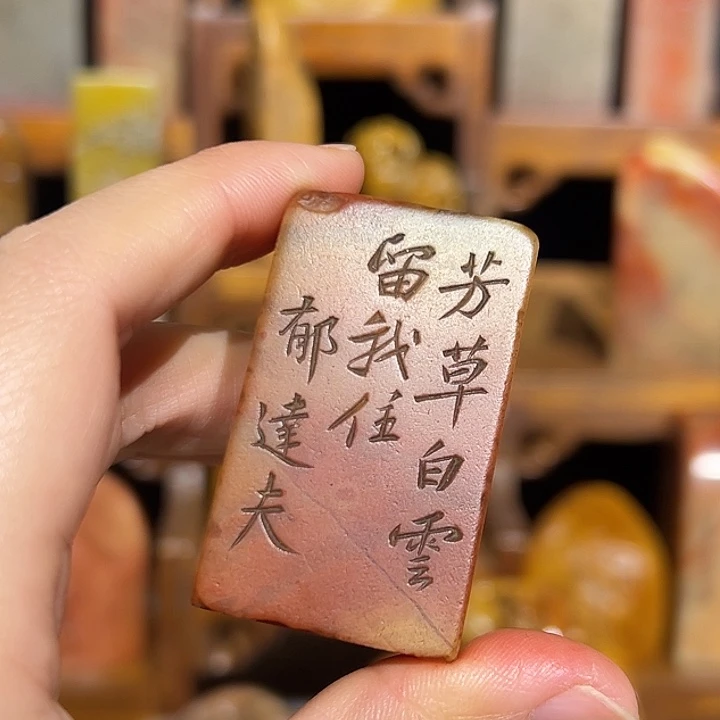 芳草白雲
留我住
郁達夫